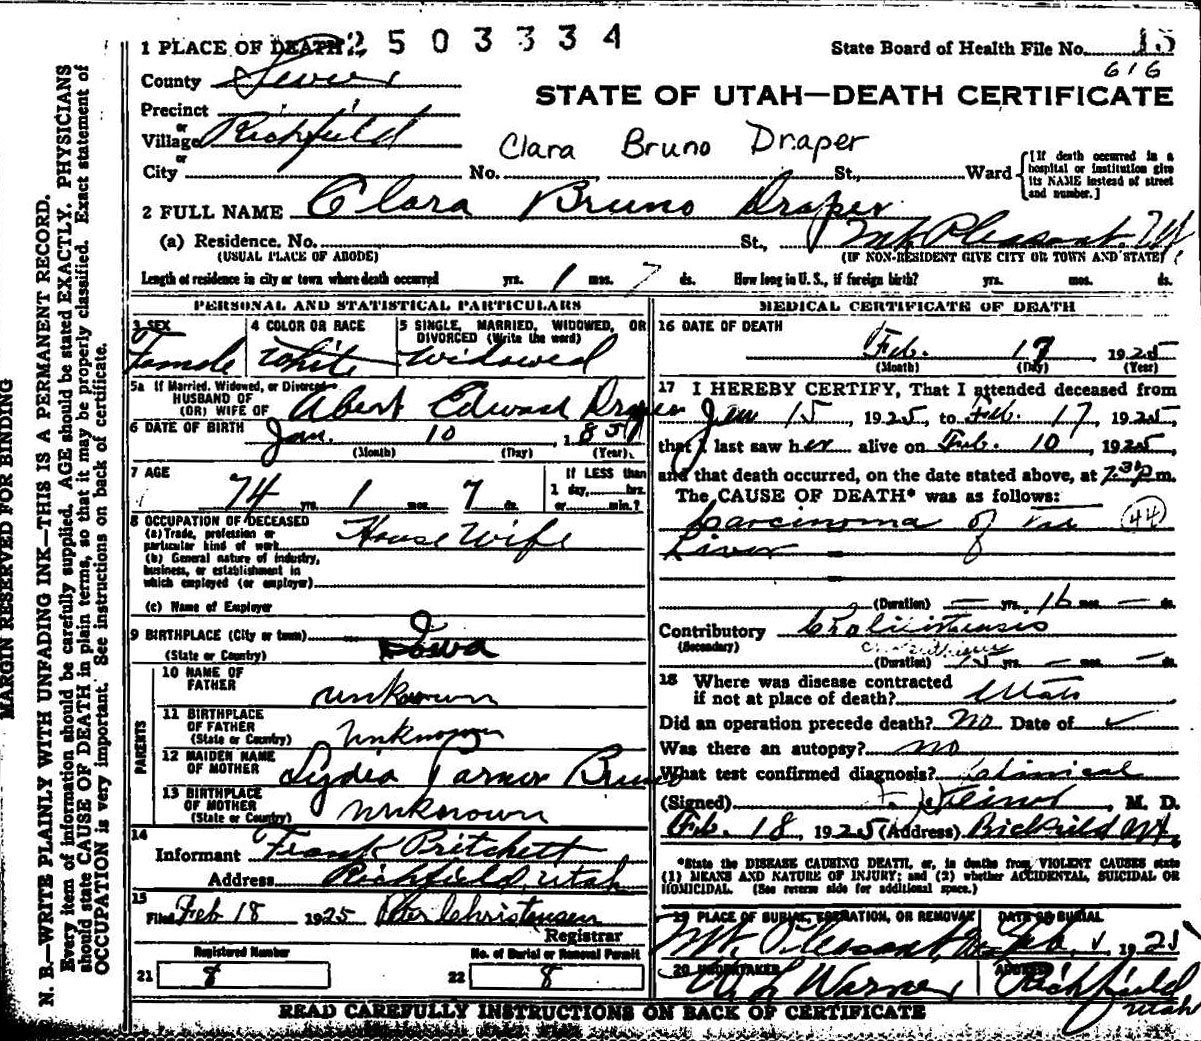 1 PLACE OF DEATH 2503334
State Board of Health File No. 15
616
County Sevier
STATE OF UTAH—DEATH CERTIFICATE
Precinct
or
Village Richfield
Clara Bruno Draper
or
City No. St., Ward
[If death occurred in a hospital or institution give its NAME instead of street and number.]
2 FULL NAME Clara Bruno Draper
(a) Residence. No. St., Mt. Pleasant, Ut
(USUAL PLACE OF ABODE) (IF NON-RESIDENT GIVE CITY OR TOWN AND STATE)
Length of residence in city or town where death occurred yrs. 1 mos. 7 ds. How long in U. S., if foreign birth? yrs. mos. ds.
PERSONAL AND STATISTICAL PARTICULARS
3 SEX 4 COLOR OR RACE 5 SINGLE, MARRIED, WIDOWED, OR
DIVORCED (Write the word)
Female White Widowed
5a If Married, Widowed, or Divorced
HUSBAND OF
(OR) WIFE OF Abert Edward Draper
6 DATE OF BIRTH Jan. 10
(Month) (Day) (Year)
7 AGE If LESS than
74 yrs. 1 mos. 7 ds. 1 day, hrs.
or min.?
8 OCCUPATION OF DECEASED
(a) Trade, profession or
particular kind of work House Wife
(b) General nature of industry,
business, or establishment in
which employed (or employer)
(c) Name of Employer
9 BIRTHPLACE (City or town)
(State or Country) Iowa
PARENTS
10 NAME OF
FATHER unknown
11 BIRTHPLACE
OF FATHER
(State or Country) Unknown
12 MAIDEN NAME
OF MOTHER Lydia Bruno
13 BIRTHPLACE
OF MOTHER
(State or Country) unknown
14
Informant Frank Pritchett
Address Richfield, Utah
15
Filed Feb 18 1925 Peter Christensen
Registrar
Registered Number No. of Burial or Removal Permit
21 8 22 8
MEDICAL CERTIFICATE OF DEATH
16 DATE OF DEATH
Feb. 17, 1925
(Month) (Day) (Year)
17 I HEREBY CERTIFY, That I attended deceased from
Jan 15, 1925, to Feb. 17, 1925,
that I last saw her alive on Feb. 10, 1925,
and that death occurred, on the date stated above, at 7:30 p.m.
The CAUSE OF DEATH* was as follows:
Carcinoma of the 44
Liver
(Duration) — yrs. 16 mos. — ds.
Contributory
(Secondary)
(Duration) yrs. — mos. — ds.
18 Where was disease contracted
if not at place of death? Utah
Did an operation precede death? No Date of ✓
Was there an autopsy? no
What test confirmed diagnosis?
(Signed) , M. D.
Feb. 18, 1925 (Address) Richfield Ut.
*State the DISEASE CAUSING DEATH, or, in deaths from VIOLENT CAUSES state
(1) MEANS AND NATURE OF INJURY; and (2) whether ACCIDENTAL, SUICIDAL OR
HOMICIDAL. (See reverse side for additional space.)
19 PLACE OF BURIAL, CREMATION, OR REMOVAL DATE OF BURIAL
Mt. Pleasant, Feb 1925
20 UNDERTAKER ADDRESS
Warner Richfield
Utah
READ CAREFULLY INSTRUCTIONS ON BACK OF CERTIFICATE
MARGIN RESERVED FOR BINDING
N. B.—WRITE PLAINLY WITH UNFADING INK—THIS IS A PERMANENT RECORD.
Every item of information should be carefully supplied. AGE should be stated EXACTLY. PHYSICIANS
should state CAUSE OF DEATH in plain terms, so that it may be properly classified. Exact statement of
OCCUPATION is very important. See instructions on back of certificate.